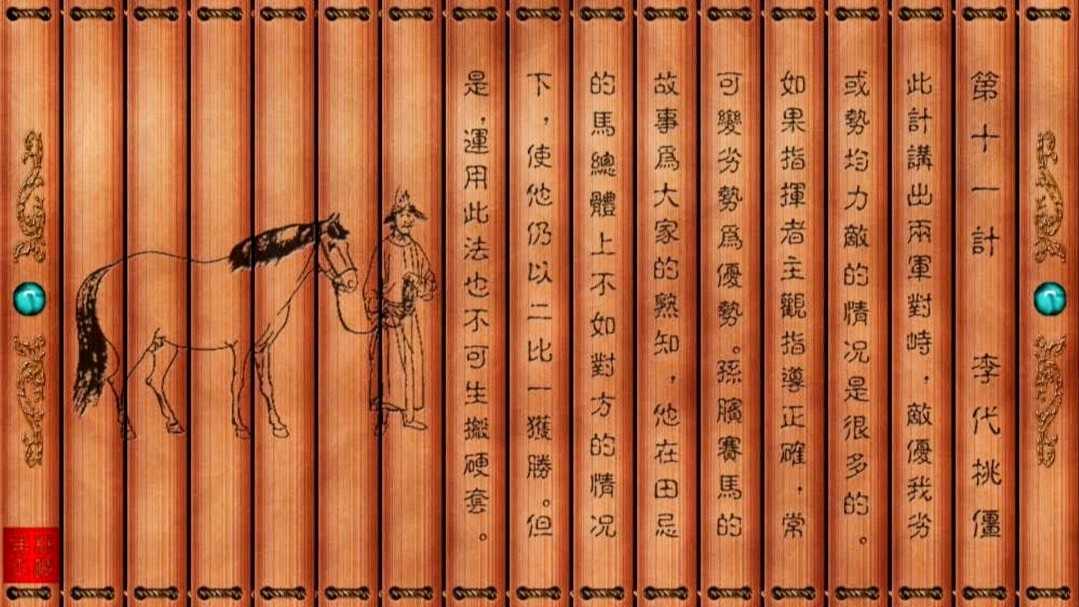 第十一計　李代挑僵
此計講出兩軍對峙，敵優我劣
或勢均力敵的情况是很多的。
如果指揮者主觀指導正確，常
可變劣勢爲優勢。孫臏賽馬的
故事爲大家的熟知，他在田忌
的馬總體上不如對方的情况
下，使他仍以二比一獲勝。但
是，運用此法也不可生搬硬套。